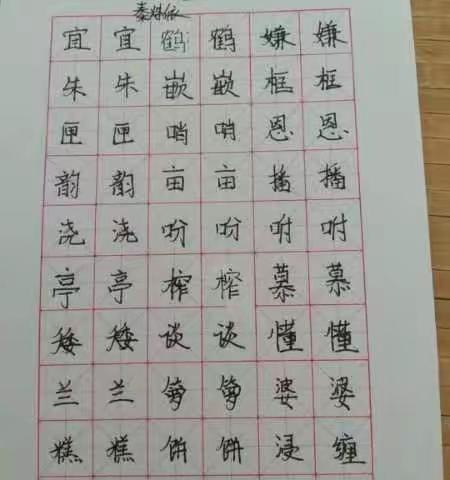 宜宜鹤鹤嫌嫌
朱朱嵌嵌框框
匣匣哨哨恩恩
韵韵亩亩播播
浇浇吩吩咐咐
亭亭榨榨慕慕
矮矮谈谈懂懂
兰兰箩箩婆婆
糕糕饼饼浸缠